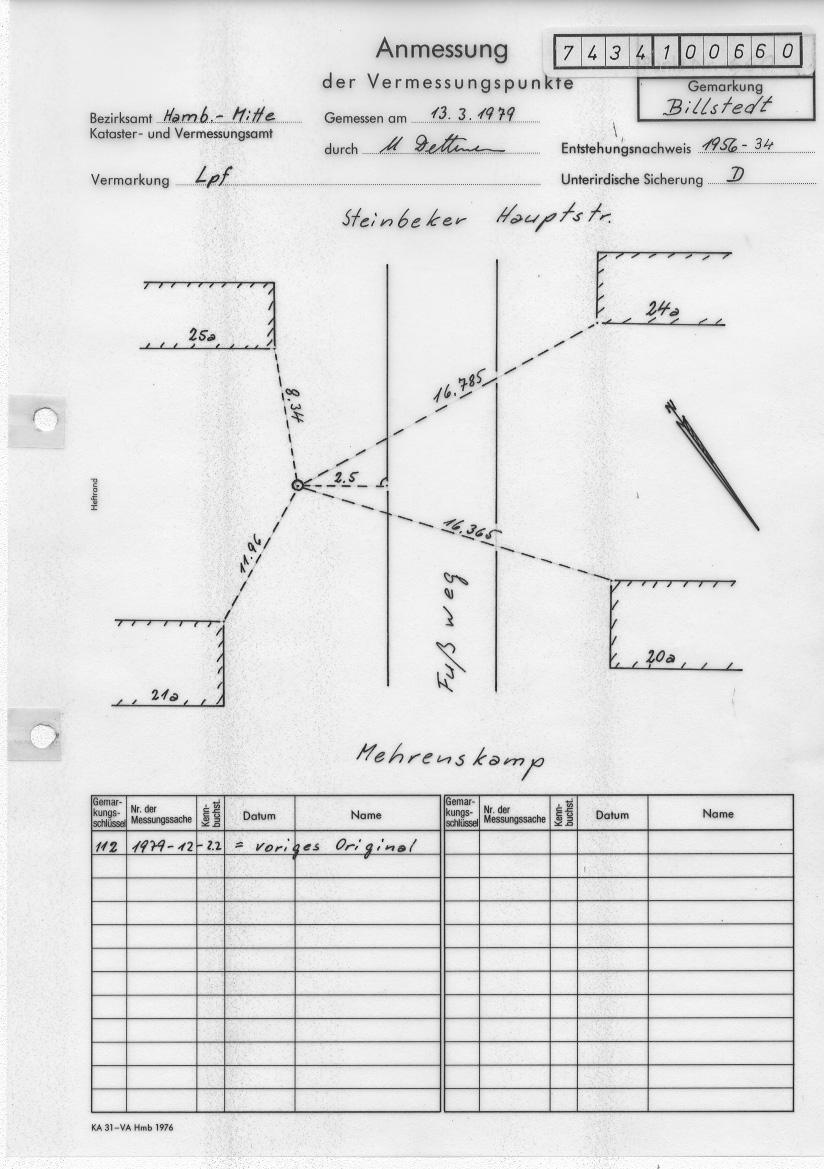 Anmessung
der Vermessungspunkte
7 4 3 4 1 0 0 6 6 0
Gemarkung
Billstedt
Bezirksamt Hamb.-Mitte
Kataster- und Vermessungsamt
Gemessen am 13.3.1979
durch M Dettmer
Entstehungsnachweis 1956-34
Vermarkung Lpf
Unterirdische Sicherung D
Steinbeker Hauptstr.
25a
24a
8.34
16.785
N
2.5
Heftrand
16.365
11.96
Fußweg
21a
20a
Mehrenskamp
Gemar-kungs-schlüssel Nr. der Messungssache Kenn-buchst. Datum Name Gemar-kungs-schlüssel Nr. der Messungssache Kenn-buchst. Datum Name
112 1979-12-2.2 = voriges Original
KA 31–VA Hmb 1976